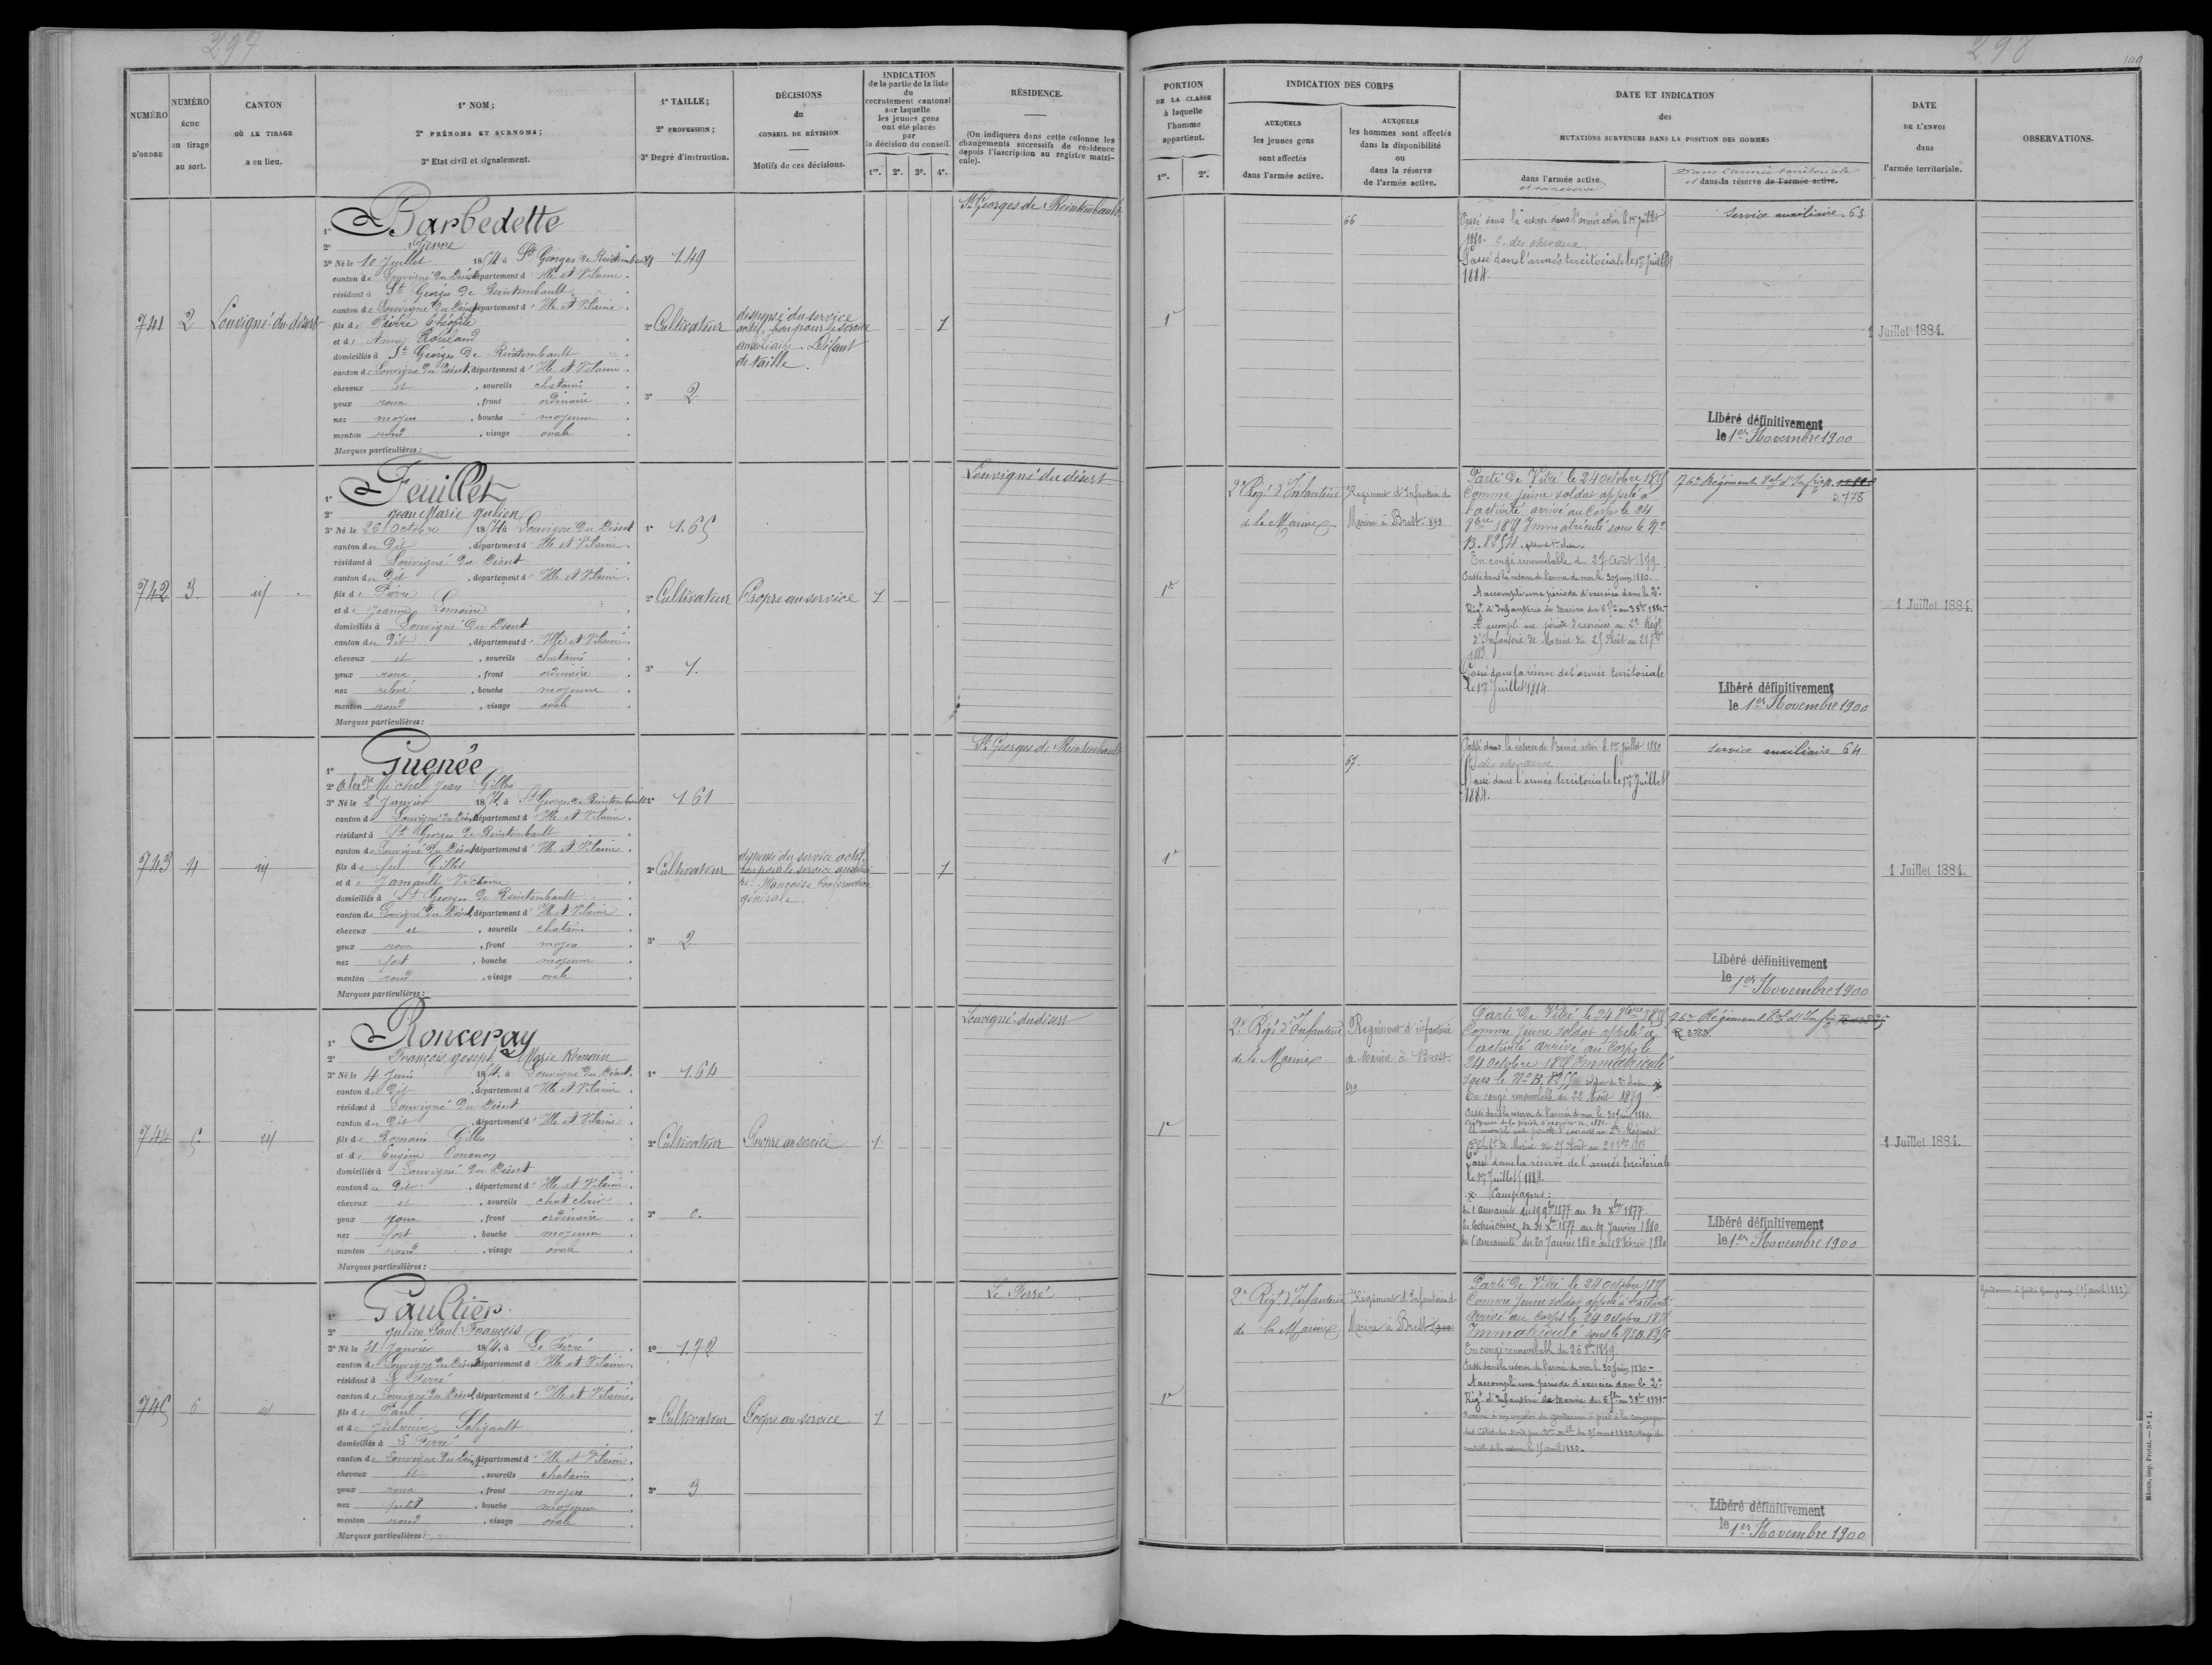 297
NUMÉRO D'ORDRE
NUMÉRO ÉCHU au tirage au sort.
CANTON OÙ LE TIRAGE a eu lieu.
1° NOM;
2° PRÉNOMS ET SURNOMS;
3° Etat civil et signalement.
1° TAILLE;
2° PROFESSION;
3° Degré d'instruction.
DÉCISIONS du CONSEIL DE RÉVISION
Motifs de ces décisions.
INDICATION
de la partie de la liste
du
recrutement cantonal
sur laquelle
les jeunes gens
ont été placés
par
la décision du conseil.
1re. 2e. 3e. 4e.
RÉSIDENCE.
(On indiquera dans cette colonne les
changements successifs de résidence
depuis l'inscription au registre matri-
cule).
741
2
Louvigné-du-désert
1° Barbedette
2° Pierre
3° Né le 10 Juillet 1854 à St Georges de Reintembault
canton de Louvigné du Désert département d'Ille et Vilaine.
résidant à St Georges de Reintembault
canton de Louvigné du Désert département d'Ille et Vilaine.
fils de Pierre Théophile
et de Anne
domiciliés à St Georges de Reintembault
canton de Louvigné du Désert, département d'Ille et Vilaine.
cheveux et, sourcils chatains
yeux roux, front ordinaire
nez moyen, bouche moyenne
menton rond, visage ovale
Marques particulières:
1.49
2° Cultivateur
3° 2
dispensé du service
actif, bon pour le service
auxiliaire. Défaut
de taille.
1
St Georges de Reintembault
742
3
id
1° Feuillet
2° Jean Marie Julien
3° Né le 26 Octobre 1854 à Louvigné du Désert
canton du Dit, département d'Ille et Vilaine.
résidant à Louvigné du Désert
canton du Dit, département d'Ille et Vilaine.
fils de Pierre
et de Jeanne Lemoine
domiciliés à Louvigné du Désert
canton du Dit, département d'Ille et Vilaine.
cheveux et, sourcils chatains
yeux roux, front ordinaire
nez relevé, bouche moyenne
menton rond, visage ovale
Marques particulières:
1° 1.65
2° Cultivateur
3° 1.
Propre au service
1
Louvigné du désert
743
4
id
1° Guenée
2° Michel Jean Gilles
3° Né le 2 Janvier 1854 à St Georges de Reintembault
canton de Louvigné du Désert département d'Ille et Vilaine.
résidant à St Georges de Reintembault
canton de Louvigné du Désert département d'Ille et Vilaine.
fils de feu Gilles
et de Jamault Victoire
domiciliés à St Georges de Reintembault
canton de Louvigné du Désert, département d'Ille et Vilaine.
cheveux et, sourcils chatains
yeux roux, front moyen
nez fort, bouche moyenne
menton rond, visage ovale
Marques particulières:
1.61
2° Cultivateur
3° 2
dispensé du service actif,
bon pour le service auxiliai
re. Mauvaise Conformation
générale.
1
St Georges de Reintembault
744
5
id
1° Ronceray
2° François Joseph Marie Romain
3° Né le 4 Juin 1854 à Louvigné du Désert.
canton du Dit, département d'Ille et Vilaine.
résidant à Louvigné du Désert
canton du Dit, département d'Ille et Vilaine.
fils de Romain Gilles
et de Eugénie Couenon
domiciliés à Louvigné du Désert
canton du Dit, département d'Ille et Vilaine.
cheveux et, sourcils chat clair
yeux roux, front ordinaire
nez fort, bouche moyenne
menton rond, visage ovale
Marques particulières:
1° 1.64
2° Cultivateur
3° 0.
Propre au service
1
Louvigné-du-désert
745
6
id
1° Gaultier.
2° Julien Paul François
3° Né le 31 Janvier 1854 à Le Ferré
canton de Louvigné du Désert département d'Ille et Vilaine.
résidant à Le Ferré
canton de Louvigné du Désert, département d'Ille et Vilaine.
fils de Paul
et de Saligault
domiciliés à Le Ferré
canton de Louvigné du Désert, département d'Ille et Vilaine.
cheveux et, sourcils chatains
yeux roux, front moyen
nez petit, bouche moyenne
menton rond, visage ovale
Marques particulières:
1° 1.72
2° Cultivateur
3° 3
Propre au service
1
Le Ferré
298
149
PORTION
DE LA CLASSE
à laquelle
l'homme
appartient.
1re. 2e.
INDICATION DES CORPS
AUXQUELS
les jeunes gens
sont affectés
dans l'armée active.
AUXQUELS
les hommes sont affectés
dans la disponibilité
ou
dans la réserve
de l'armée active.
DATE ET INDICATION
des
MUTATIONS SURVENUES DANS LA POSITION DES HOMMES
dans l'armée active.
et sa réserve
Dans l'armée territoriale
et dans la réserve de l'armée active.
DATE
DE L'ENVOI
dans
l'armée territoriale.
OBSERVATIONS.
1re
66
Passé dans la réserve dans l'armée active le 1er juillet
1880. C. des chevaux
Passé dans l'armée territoriale le 1er Juillet
1884.
Service auxiliaire 63
Libéré définitivement
le 1er Novembre 1900
1 Juillet 1884.
1re
2e Régt d'Infanterie
de la Marine
Régiment d'Infanterie de
Marine à Brest. 893
Parti de Vitré le 24 octobre 1875
Comme jeune soldat appelé à
l'activité arrivé au Corps le 24
8bre 1875 Immatriculé sous le No
B. 8254.
En congé renouvelable du 27 Août 1879.
Passé dans la réserve de l'armée de mer le 30 juin 1880.
A accompli une période d'exercice dans le 2e
Régt d'Infanterie de Marine du 6 7bre au 3 8bre 1881.
A accompli une période d'exercices au 2e Régt
d'Infanterie de Marine du 25 Août au 21 7bre
1883
Passé dans la réserve de l'armée territoriale
le 1er Juillet 1884.
76e Régiment Tal d'Infie
3778
Libéré définitivement
le 1er Novembre 1900
1 Juillet 1884.
1re
67.
Passé dans la réserve de l'armée active le 1er juillet 1880
C. des chevaux
Passé dans l'armée territoriale le 1er Juillet
1884.
Service auxiliaire 64
Libéré définitivement
le 1er Novembre 1900
1 Juillet 1884.
1re
2e Régt d'Infanterie
de la Marine
Régiment d'infanterie
de Marine à Brest
899
Parti de Vitré le 24 8bre 1875
Comme jeune soldat appelé à
l'activité arrivé au Corps le
24 Octobre 1875 Immatriculé
sous le No B. 8255
En congé renouvelable du 22 Août 1879
Passé dans la réserve de l'armée de mer le 30 juin 1880.
A accompli une période d'exercices au 2e Régiment
d'Infie de Marine du 25 Août au 21 7bre 1883
Passé dans la réserve de l'armée territoriale
le 1er Juillet 1884.
Campagnes:
1877 au 30 Xbre 1877
En Cochinchine du 31 Xbre 1877 au 19 Janvier 1880
du 20 Janvier 1880 au 18 Février 1880
76e Régiment Tal d'Infie
R 3763
Libéré définitivement
le 1er Novembre 1900
1 Juillet 1884.
1re
2e Régt d'Infanterie
de la Marine
Régiment d'Infanterie de
Marine à Brest 900
Parti de Vitré le 24 octobre 1875
Comme jeune soldat appelé à l'activité
arrivé au Corps le 24 octobre 1875
Immatriculé sous le No B.
En congé renouvelable du 26 8bre 1879.
Passé dans la réserve de l'armée de mer le 30 Juin 1880.
A accompli une période d'exercice dans le 2e
Régt d'Infanterie de Marine du 6 7bre au 3 8bre 1881.
Nommé à un emploi de gendarme à pied à la compagnie
des Côtes du Nord par Don Mlle du 25 mars 1882. Rayé du
contrôle de la réserve le 15 avril 1882.
Libéré définitivement
le 1er Novembre 1900
Gendarme à pied à Guingamp (15 avril 1882)